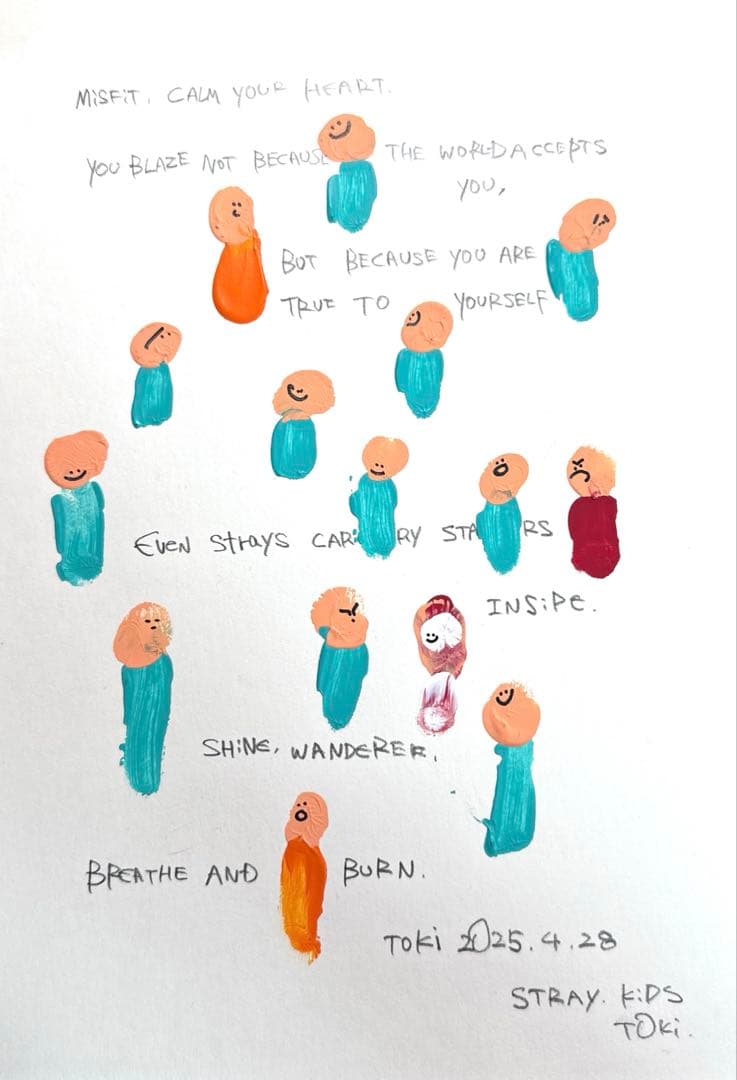 MiSFiT, CALM YOUR HEART.
YOU BLAZE NOT BECAUSE THE WORLD ACCEPTS
YOU,
BUT BECAUSE YOU ARE
TRUE TO YOURSELF
Even Strays CARRY STARS
INSiDE.
SHiNE, WANDERER,
BREATHE AND BURN.
TOKi 2025.4.28
STRAY. KiDS
TOKi.